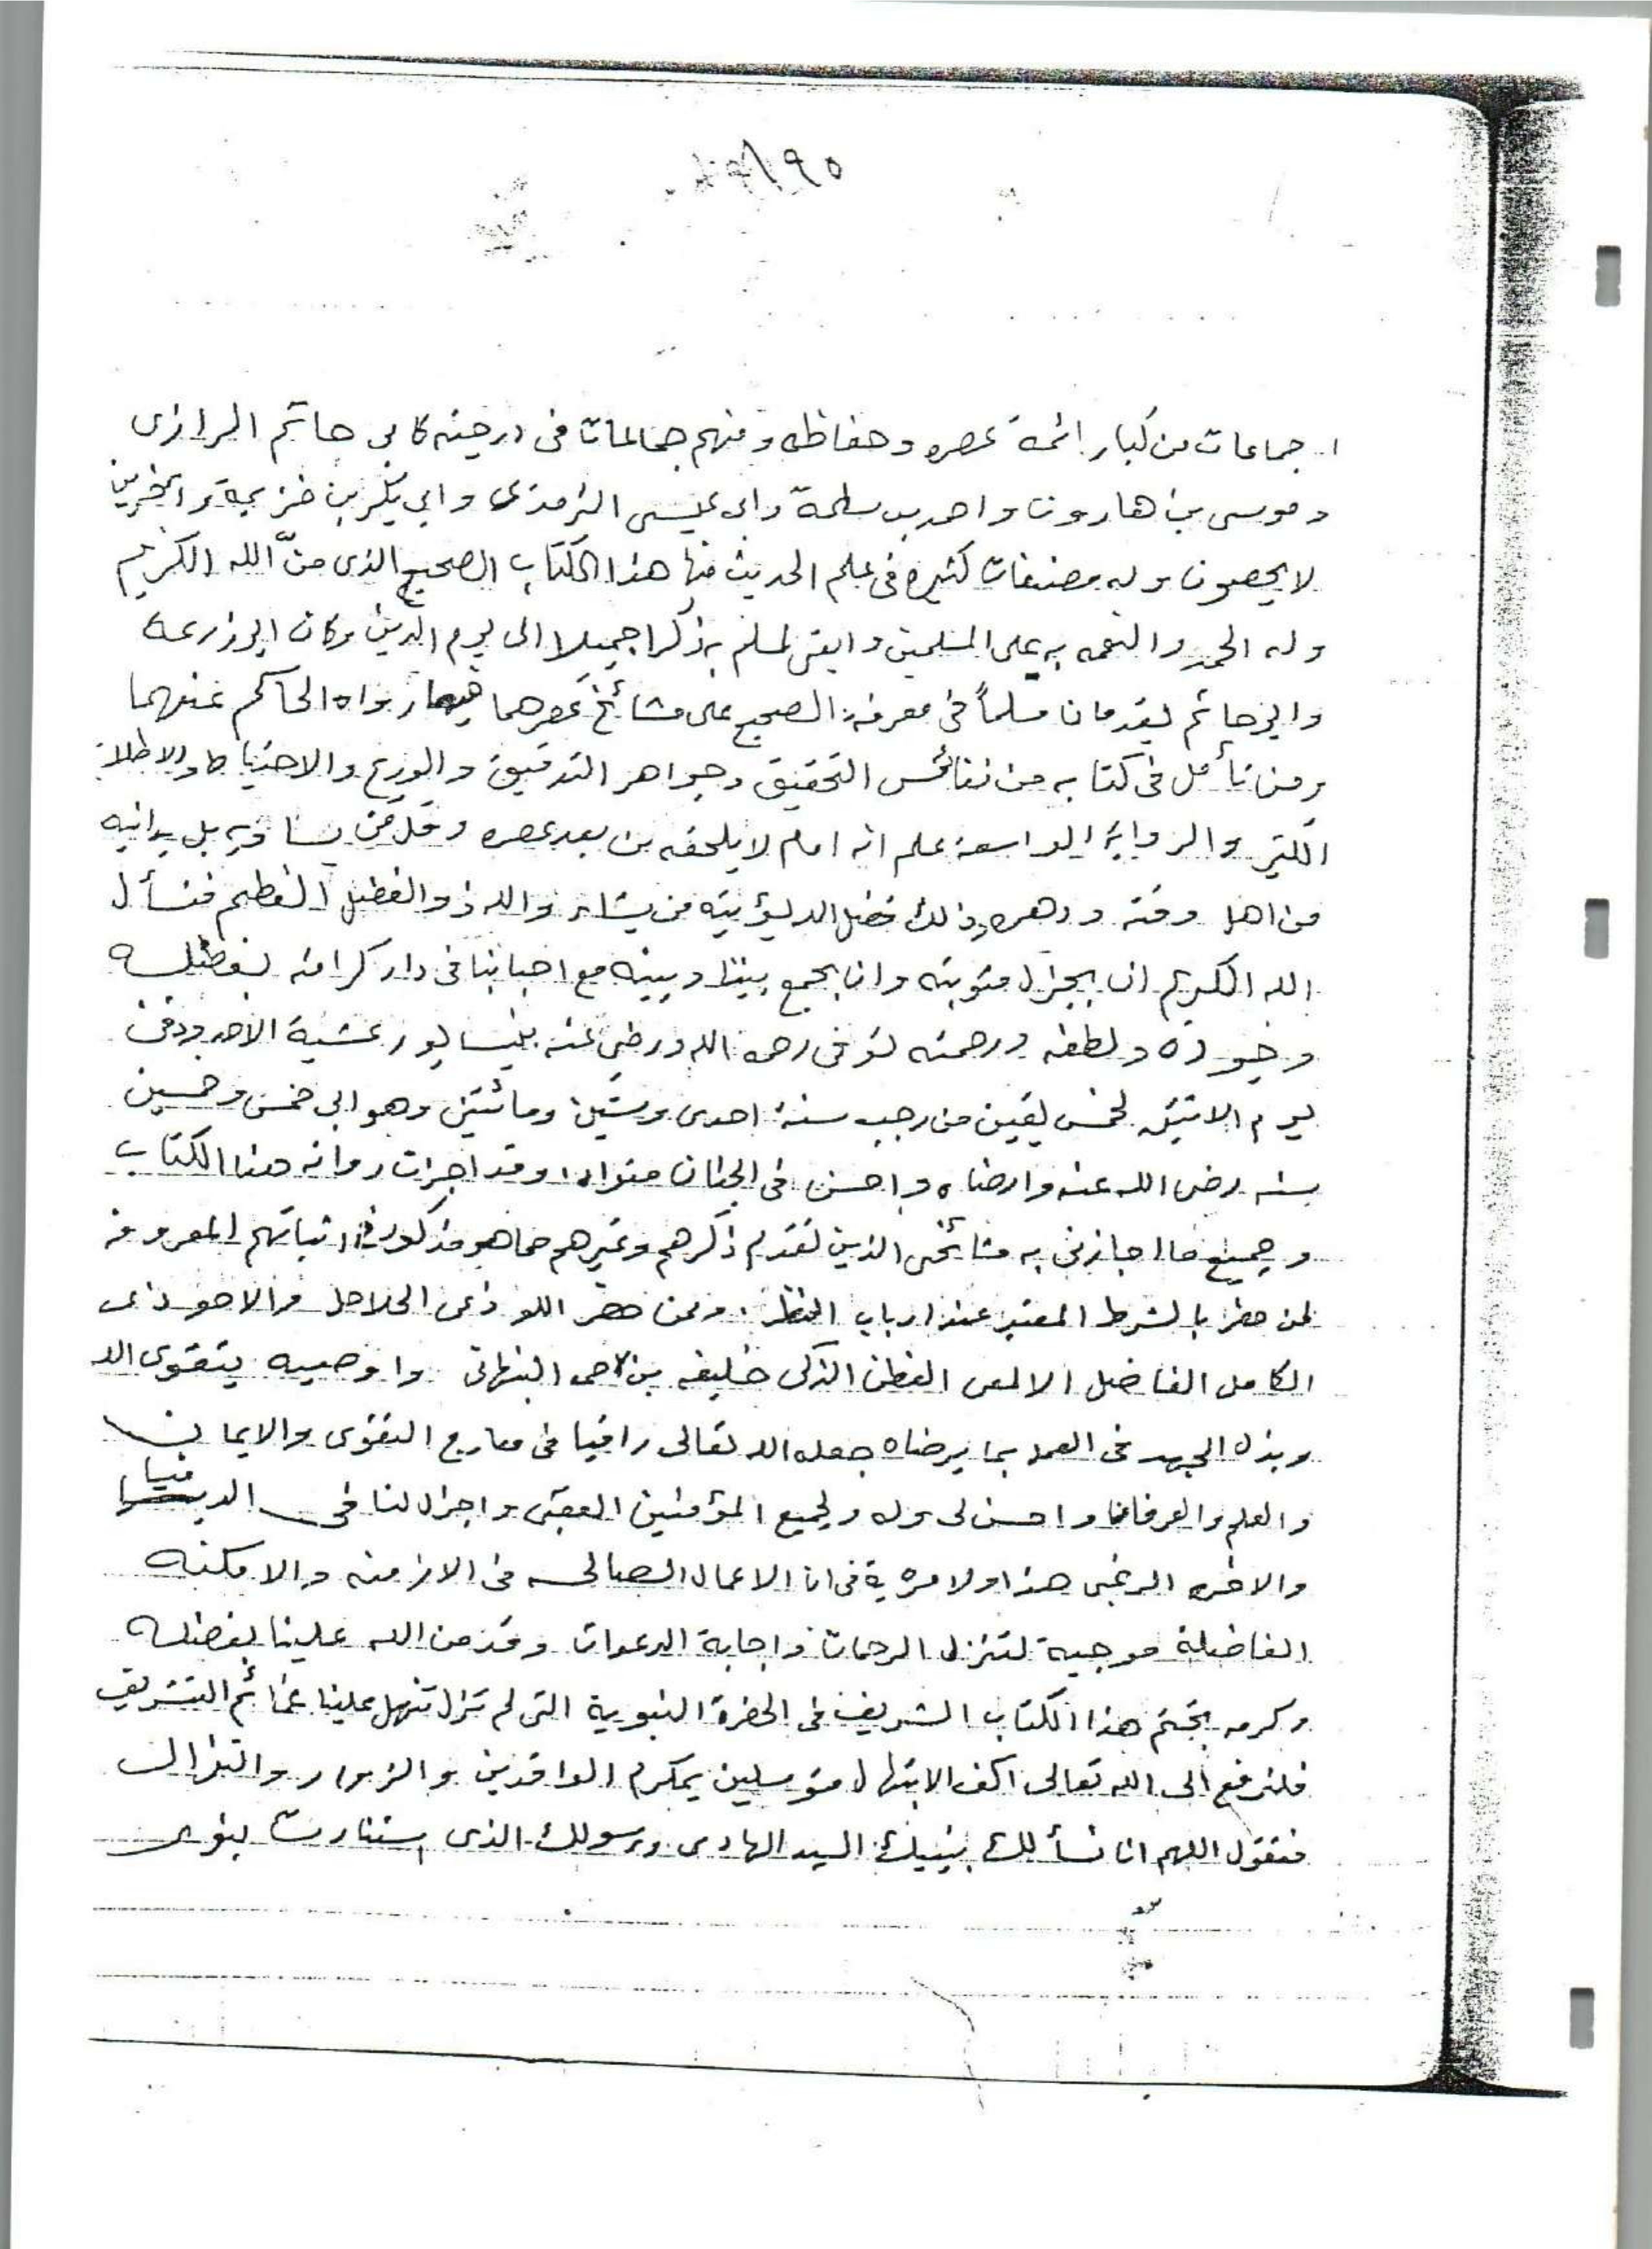 جماعات من كبار ائمة عصره وحفاظه ومنهم جماعات فى درجته كابى حاتم الرازى
وموسى بن هارون واحمد بن سلمة وابى عيسى الترمذى وابي بكر بن خزيمة وآخرين
لا يحصون وله مصنفات كثيره فى علم الحديث منها هذا الكتاب الصحيح الذى منّ الله الكريم
وله الحمد والنعمه به على المسلمين وابقى لمسلم به ذكرا جميلا الى يوم الدين وكان ابو زرعة
وابو حاتم يقدمان مسلماً فى معرفة الصحيح على مشائخ عصرهما فيما رواه الحاكم عنهما
ومن تأمل فى كتابه من نفائس التحقيق وجواهر التدقيق والورع والاحتياط والاطلاع
الكثير والرواية الواسعة علم انه امام لا يلحقه من بعد عصره وقل من يساويه بل يدانيه
من اهل وقته ودهره وذلك فضل الله يؤتيه من يشاء والله ذو الفضل العظيم فنسأل
الله الكريم ان يجزل مثوبته وان يجمع بيننا وبينه مع احبابنا فى دار كرامته بفضله
وجوده ولطفه ورحمته توفى رحمه الله ورضي عنه بنيسابور عشية الاحد ودفن
يوم الاثنين لخمس بقين من رجب سنة احدى وستين ومائتين وهو ابن خمس وخمسين
سنه رضى الله عنه وارضاه واحسن فى الجنان مثواه وقد اجزت روايه هذا الكتاب
وجميع ما اجازنى به مشائخى الذين تقدم ذكرهم وغيرهم مما هو مذكور فى اثباتهم المعروفه
لمن حضر بالشرط المعتبر عند ارباب النظر. وممن حضر اللوذعى الحلاحل والاحوذى
الكامل الفاضل الالمعى الفطن الذكى خليفه بن حمد النبهانى واوصيه بتقوى الله
وبذل الجهد فى العمل بما يرضاه جعله الله تعالى راقيا فى معارج التقوى والايمان
والعلم والعرفان واحسن لى وله ولجميع المؤمنين العقبى واجزل لنا فى الدنيا
والاخره الرغبى هذا ولا مرية فى ان الاعمال الصالحه فى الازمنه والامكنه
الفاضلة موجبة لتنزل الرحمات واجابة الدعوات وقد من الله علينا بفضله
وكرمه بختم هذا الكتاب الشريف فى الحضرة النبوية التى لم تزل تنهل علينا غمائم التشريف
فلنرفع الى الله تعالى اكف الابتهال متوسلين بمكرم الوافدين والزوار والنزال
فنقول اللهم انا نسألك بنبيك السيد الهادى ورسولك الذى استنارت بنوره